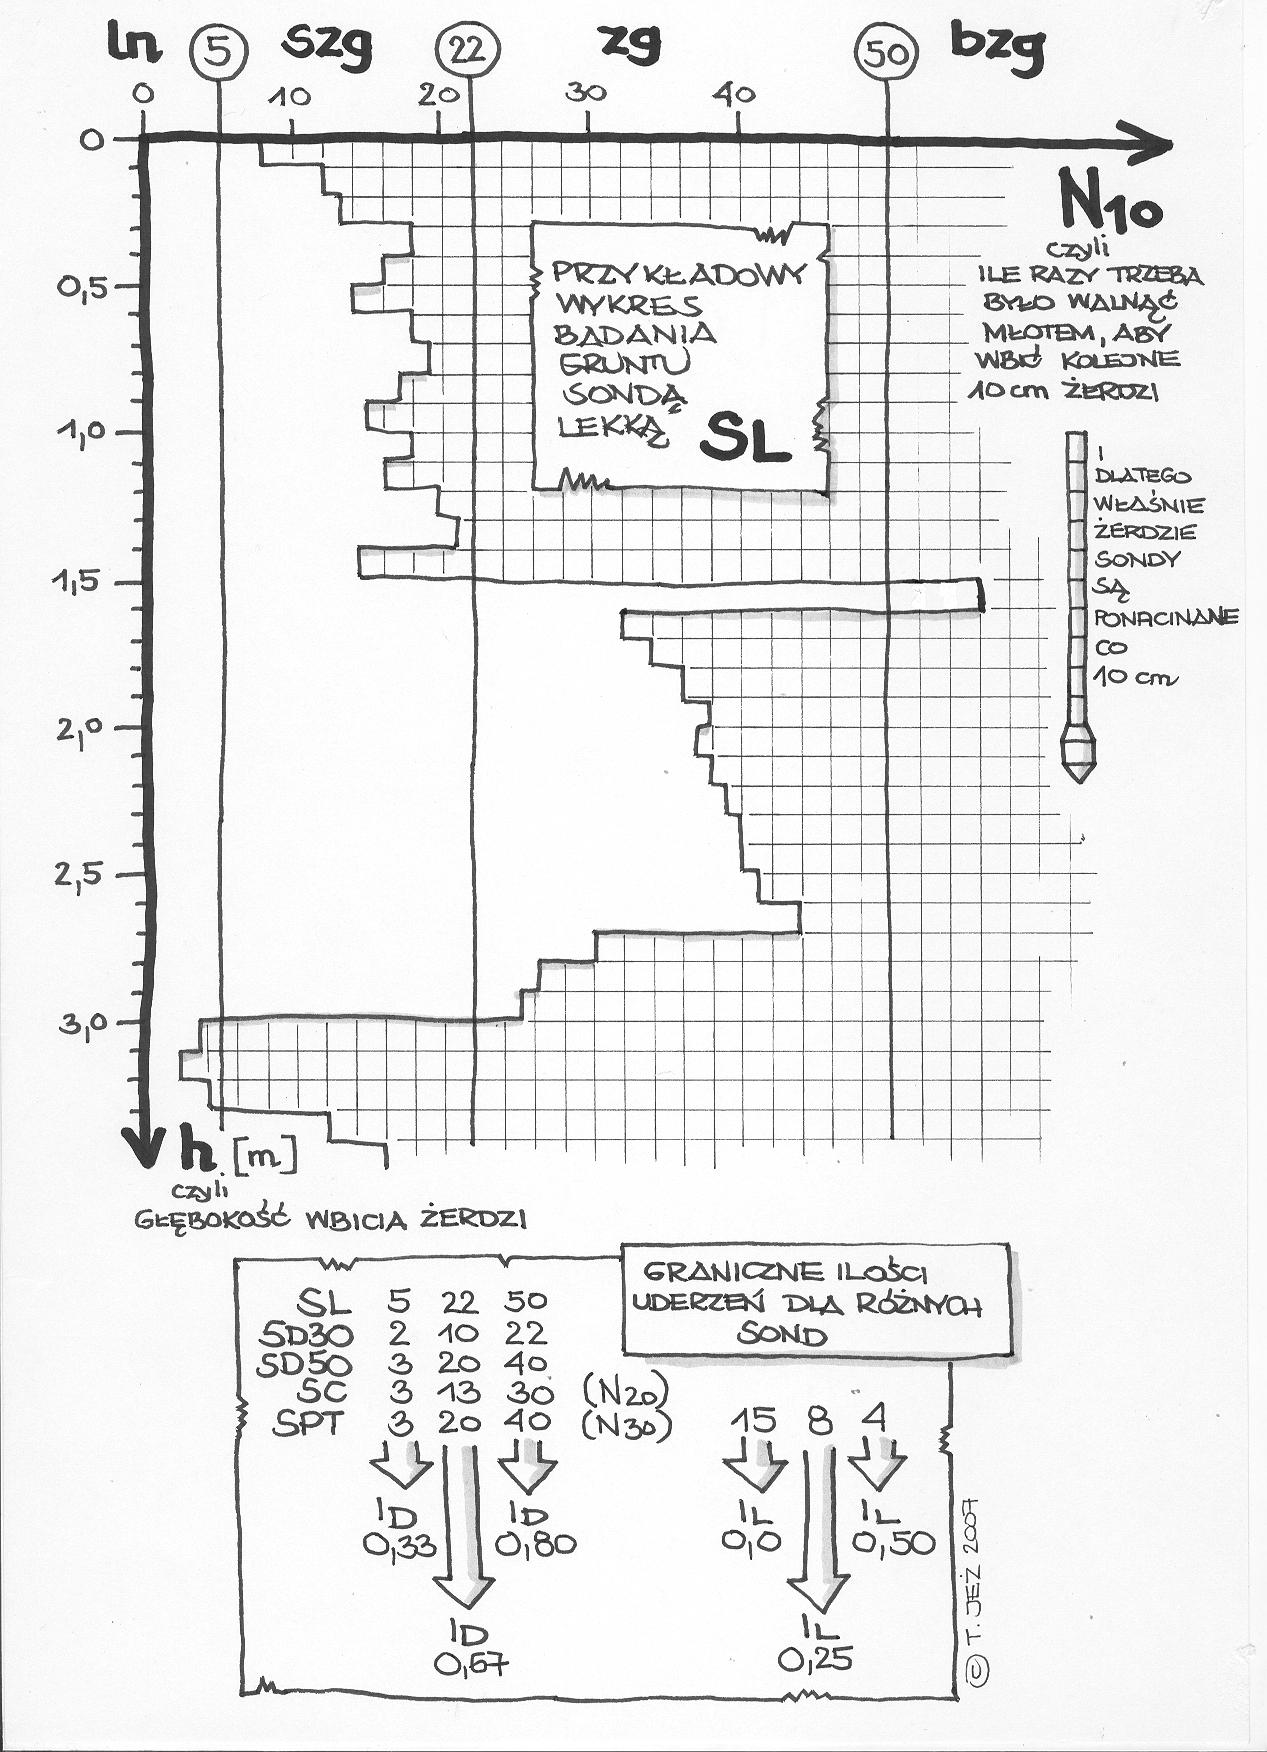 ln 5 szg 22 zg 50 bzg
0 10 20 30 40
0
0,5
1,0
1,5
2,0
2,5
3,0
N10
czyli
ILE RAZY TRZEBA
BYŁO WALNĄĆ
MŁOTEM, ABY
WBIĆ KOLEJNE
10 cm ŻERDZI
PRZYKŁADOWY
WYKRES
BADANIA
GRUNTU
SONDĄ
LEKKĄ SL
I
DLATEGO
WŁAŚNIE
ŻERDZIE
SONDY
SĄ
PONACINANE
CO
10 cm
h [m]
czyli
GŁĘBOKOŚĆ WBICIA ŻERDZI
GRANICZNE ILOŚCI
UDERZEŃ DLA RÓŻNYCH
SOND
SL 5 22 50
SD30 2 10 22
SD50 3 20 40
SC 3 13 30 (N20)
SPT 3 20 40 (N30) 15 8 4
ID ID IL IL
0,33 0,80 0,0 0,50
ID IL
0,67 0,25
© T. JEŻ 2007